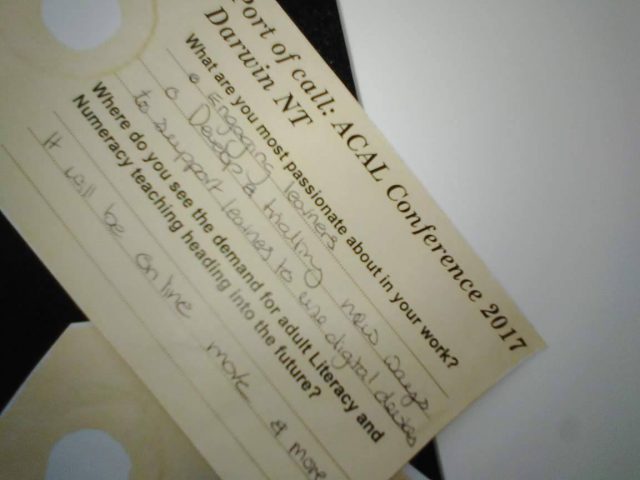 Port of call: ACAL Conference 2017
Darwin NT
What are you most passionate about in your work?
Engaging learners
Develop & trialing new ways
to support learners to use digital devices
Where do you see the demand for adult Literacy and
Numeracy teaching heading into the future?
It will be online more & more